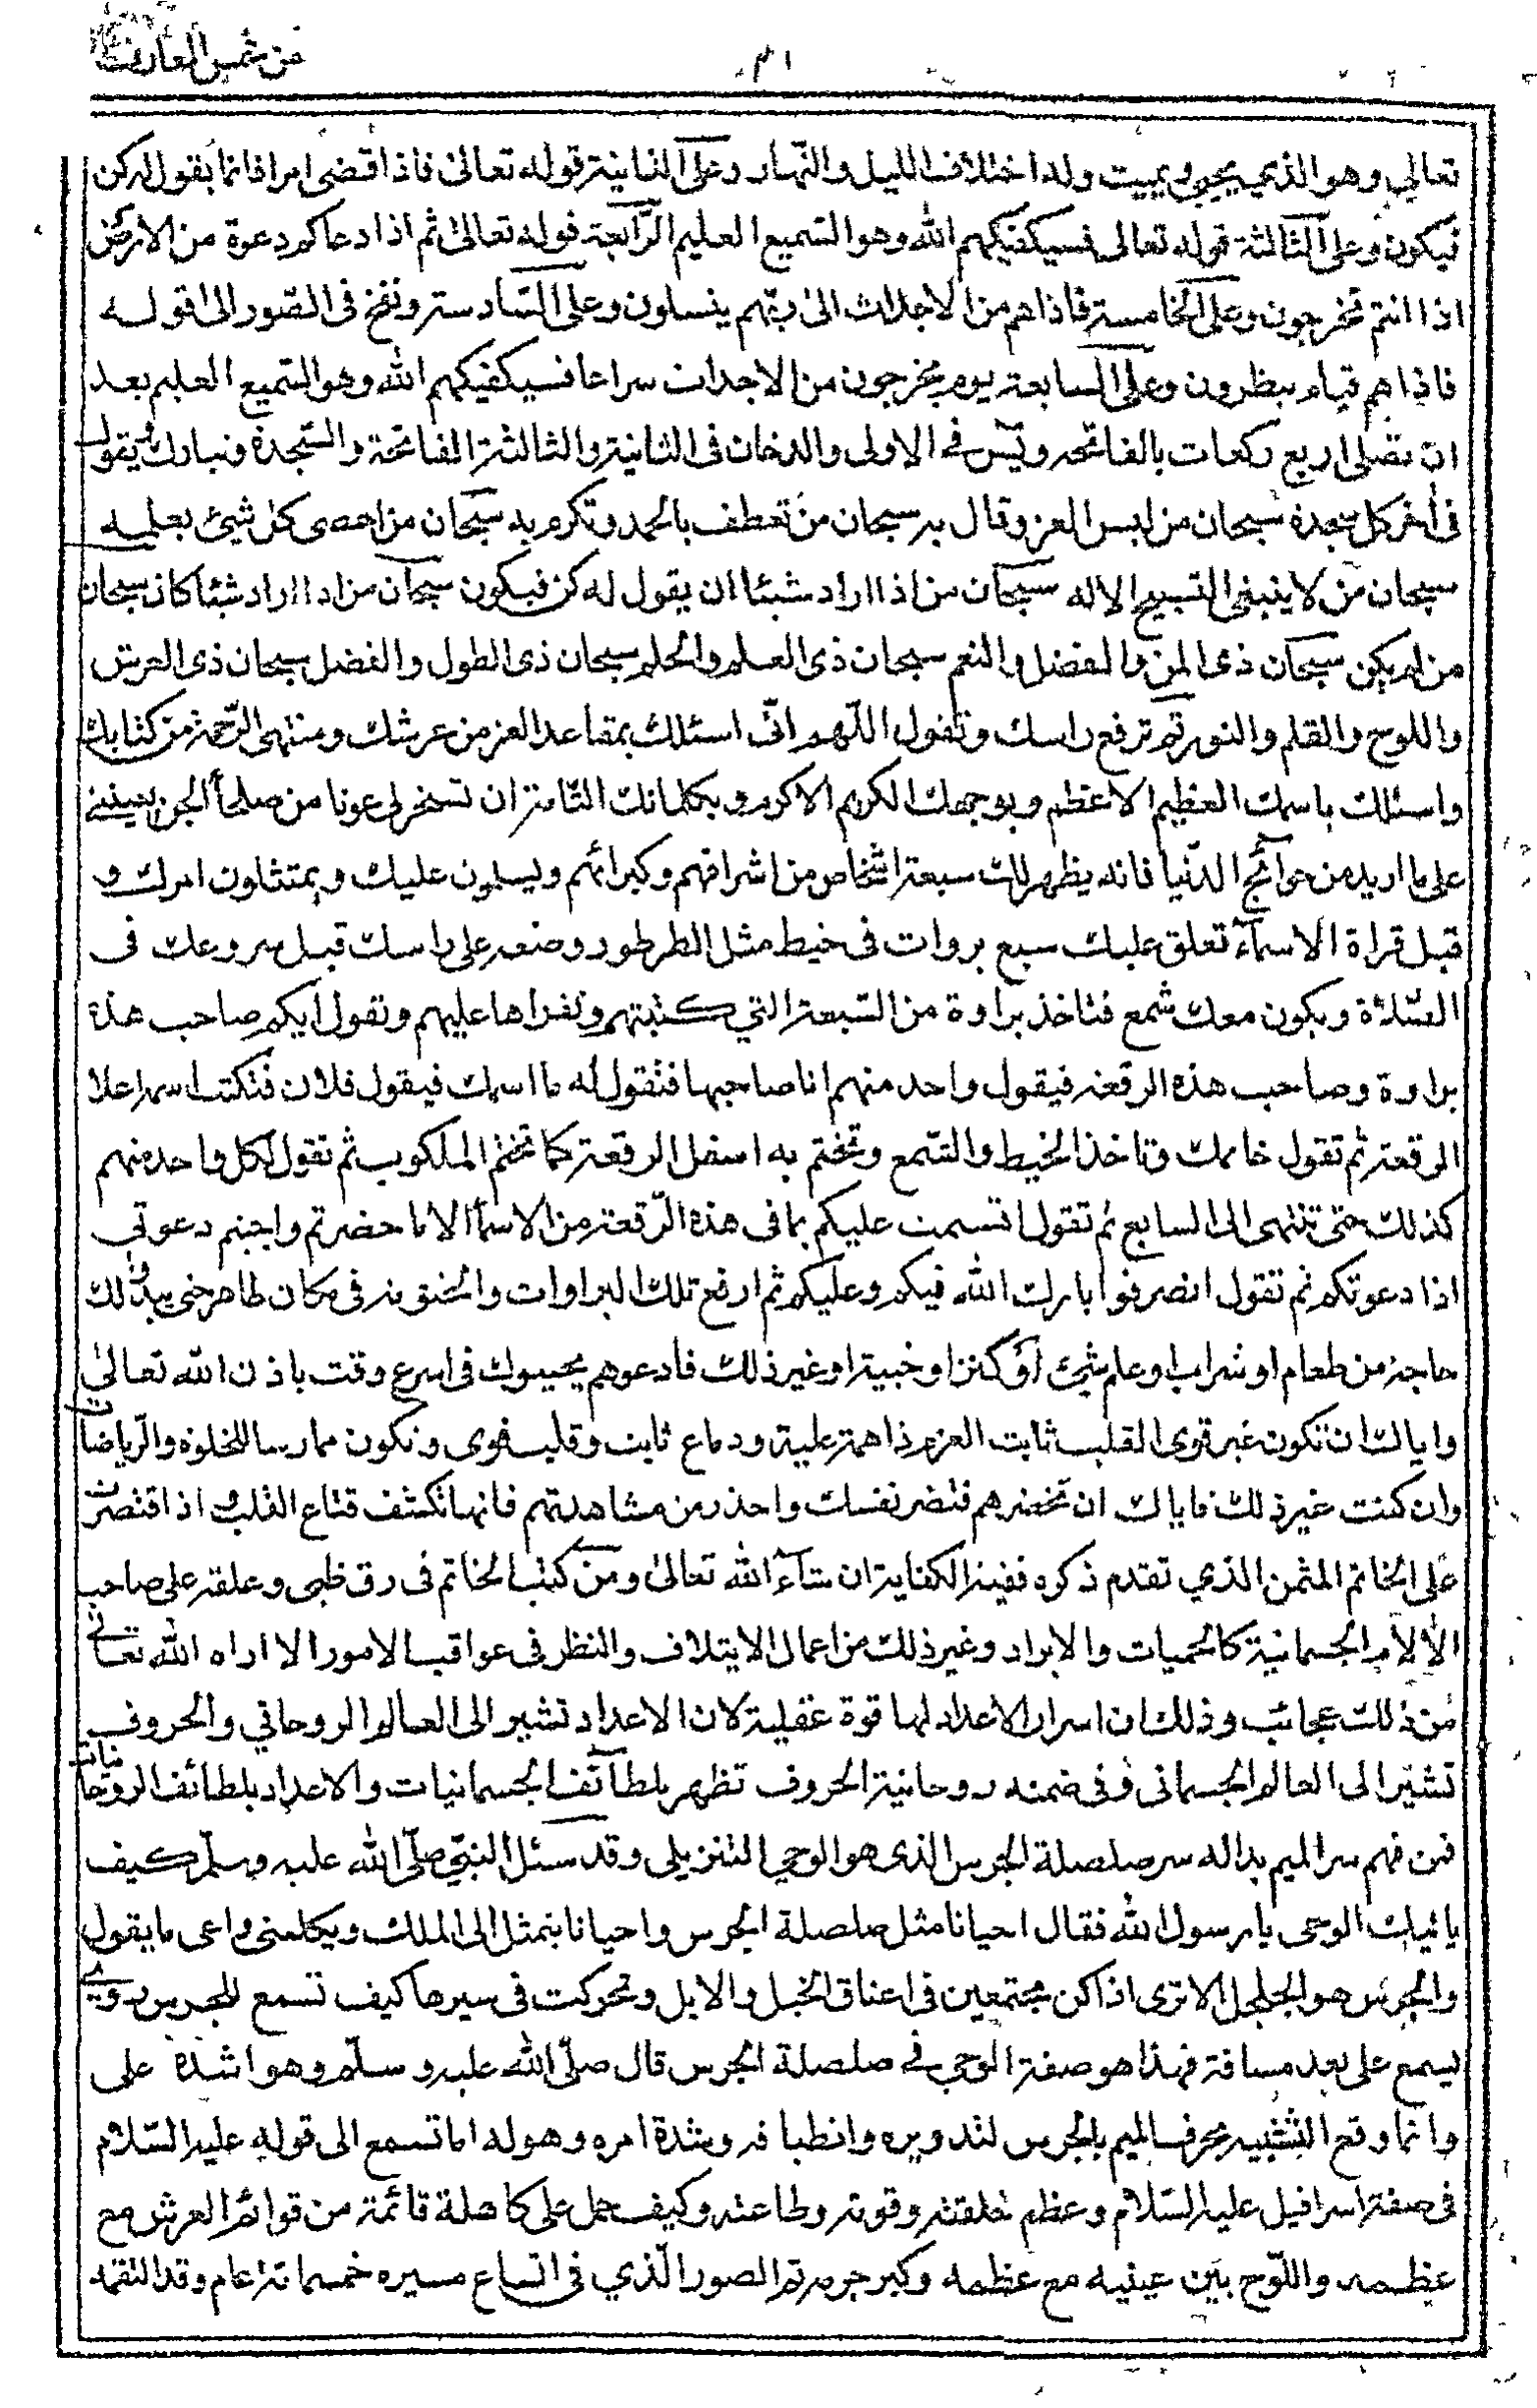 من شمس المعارف
تعالى وهو الذى يحيى ويميت وله اختلاف الليل والنهار وعلى الثانية قوله تعالى فاذا قضى امرا فانما يقول له كن
فيكون وعلى الثالثة قوله تعالى فسيكفيكهم الله وهو السميع العليم الرابعة قوله تعالى ثم اذا دعاكم دعوة من الارض
اذا انتم تخرجون وعلى الخامسة فاذا هم من الاجداث الى ربهم ينسلون وعلى السادسة ونفخ فى الصور الى قوله
فاذا هم قيام ينظرون وعلى السابعة يوم يخرجون من الاجداث سراعا فسيكفيكهم الله وهو السميع العليم بعد
ان تصلى اربع ركعات بالفاتحة ويس فى الاولى والدخان فى الثانية والثالثة الفاتحة والسجدة وتبارك ويقول
فى اخر كل سجدة سبحان من لبس العز وقال به سبحان من تعطف بالحمد وتكرم به سبحان من احصى كل شيئ بعلمه
سبحان من لا ينبغى التسبيح الا له سبحان من اذا اراد شيئا ان يقول له كن فيكون سبحان من اذا اراد شيئا كان سبحان
من لم يكن سبحان ذى المن والفضل والنعم سبحان ذى العلم والحلم سبحان ذى الطول والفضل سبحان ذى العرش
واللوح والقلم والنور ثم ترفع راسك وتقول اللهم انى اسئلك بمقاعد العز من عرشك ومنتهى الرحمة من كتابك
واسئلك باسمك العظيم الاعظم وبوجهك الكريم الاكرم وبكلماتك التامة ان تسخر لى عونا من صلحاء الجن يعيننى
على ما اريد من حوائج الدنيا فانه يظهر لك سبعة اشخاص من اشرافهم وكبرائهم ويسلمون عليك ويمتثلون امرك و
قبل قراة الاسماء تعلق عليك سبع بروات فى خيط مثل الطرطور وضعه على راسك قبل سروعك فى
الصلاة ويكون معك شمع فتاخذ براوة من السبعة التي كتبتهم وتقراها عليهم وتقول ايكم صاحب هذه
براوة وصاحب هذه الرقعة فيقول واحد منهم انا صاحبها فتقول له ما اسمك فيقول فلان فتكتب اسمه اعلا
الرقعة ثم تقول خاتمك وتاخذ الخيط والشمع وتختم به اسفل الرقعة كما تختم المكتوب ثم تقول لكل واحد منهم
كذلك حتى تنتهى الى السابع ثم تقول اقسمت عليكم بما فى هذه الرقعة من الاسما الا ما حضرتم واجبتم دعوتي
اذا دعوتكم ثم تقول انصرفوا بارك الله فيكم وعليكم ثم ارفع تلك البراوات والخنقوبة فى مكان طاهر حتى يبدو لك
حاجة من طعام او شراب او علم شيئ او كنز او خبية او غير ذلك فادعوهم يجيبوك فى اسرع وقت باذن الله تعالى
واياك ان تكون غير قوى القلب ثابت العزم ذا همة علية ودماغ ثابت وقلب قوى وتكون ممارسا للخلوة والرياضات
وان كنت غير ذلك فاياك ان تحضرهم فتضر نفسك واحذر من مشاهدتهم فانها تكشف قناع القلب اذا اقتصرت
على الخاتم المثمن الذي تقدم ذكره ففيه الكفاية ان شاء الله تعالى ومن كتب الخاتم فى رق ظبى وعلقه على صاحب
الالام الجسمانية كالحميات والابراد وغير ذلك من اعمال الايتلاف والنظر فى عواقب الامور الا اراه الله تعالى
من ذلك عجائب وذلك ان اسرار الاعداد لها قوة عقلية لان الاعداد تشير الى العالم الروحاني والحروف
تشير الى العالم الجسمانى وفى ضمنه روحانية الحروف تظهر بلطائف الجسمانيات والاعداد بلطائف الروحانيات
فمن فهم سر الميم بدا له سر صلصلة الجرس الذى هو الوحي التنزيلى وقد سئل النبي صلى الله عليه وسلم كيف
ياتيك الوحى يا رسول الله فقال احيانا مثل صلصلة الجرس واحيانا يتمثل الى الملك ويكلمنى واعى ما يقول
والجرس هو الجلجل الا ترى اذا كن مجتمعين فى اعناق الخيل والابل وتحركت فى سيرها كيف تسمع للجرس دوي
يسمع على بعد مسافة فهذا هو صفة الوحى فى صلصلة الجرس قال صلى الله عليه وسلم وهو اشده على
وانما وقع التشبيه بحرف الميم بالجرس لتدويره وانطباقه وشدة امره وهوله اما تسمع الى قوله عليه السلام
فى صفة اسرافيل عليه السلام وعظم خلقته وقوته وطاعته وكيف حمل على كاهله قائمة من قوائم العرش مع
عظمه واللوح بين عينيه مع عظمه وكبر جرمه ثم الصور الذي فى اتساع مسيره خمسمائة عام وقد التقمه